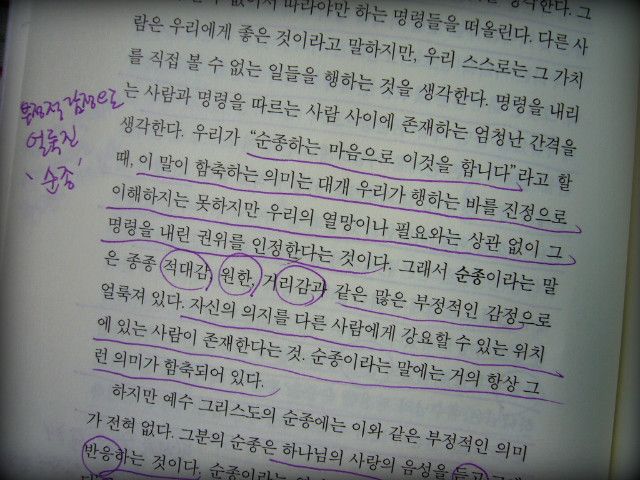 수 없어서 따라야만 하는 명령들을 떠올린다. 다른 사
람은 우리에게 좋은 것이라고 말하지만, 우리 스스로는 그 가치
를 직접 볼 수 없는 일들을 행하는 것을 생각한다. 명령을 내리
는 사람과 명령을 따르는 사람 사이에 존재하는 엄청난 간격을
생각한다. 우리가 “순종하는 마음으로 이것을 합니다”라고 할
때, 이 말이 함축하는 의미는 대개 우리가 행하는 바를 진정으로
이해하지는 못하지만 우리의 열망이나 필요와는 상관 없이 그
명령을 내린 권위를 인정한다는 것이다. 그래서 순종이라는 말
은 종종 적대감, 원한, 거리감과 같은 많은 부정적인 감정으로
얼룩져 있다. 자신의 의지를 다른 사람에게 강요할 수 있는 위치
에 있는 사람이 존재한다는 것. 순종이라는 말에는 거의 항상 그
런 의미가 함축되어 있다.
하지만 예수 그리스도의 순종에는 이와 같은 부정적인 의미
가 전혀 없다. 그분의 순종은 하나님의 사랑의 음성을 듣고
반응하는 것이다. 순종이라는
부정적 감정으로
얼룩진
'순종'